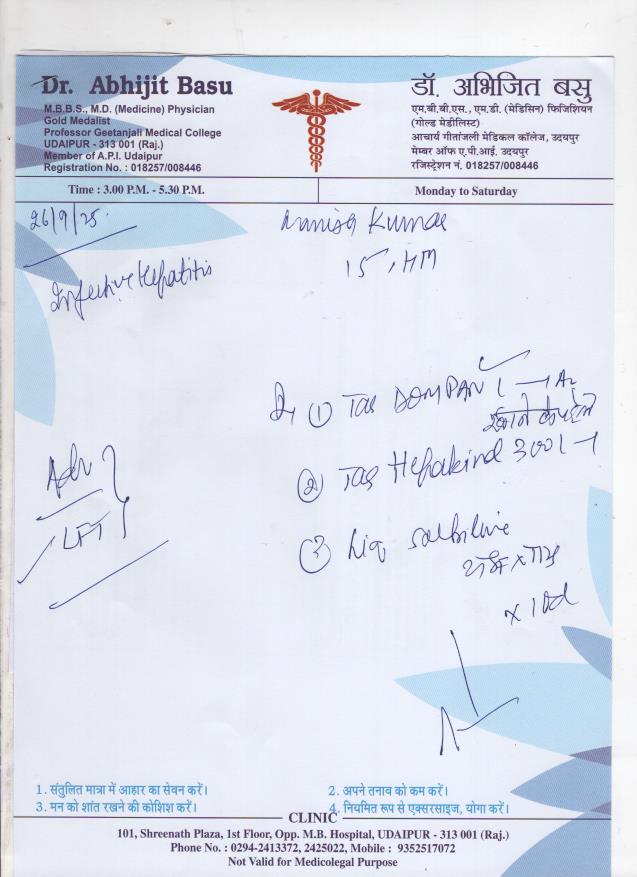 Dr. Abhijit Basu
M.B.B.S., M.D. (Medicine) Physician
Gold Medalist
Professor Geetanjali Medical College
UDAIPUR - 313 001 (Raj.)
Member of A.P.I. Udaipur
Registration No. : 018257/008446
डॉ. अभिजित बसु
एम.बी.बी.एस., एम.डी. (मेडिसिन) फिजिशियन
(गोल्ड मेडीलिस्ट)
आचार्य गीतांजली मेडिकल कॉलेज, उदयपुर
मेम्बर ऑफ ए.पी.आई. उदयपुर
रजिस्ट्रेशन नं. 018257/008446
Time : 3.00 P.M. - 5.30 P.M.
Monday to Saturday
26/9/25
Kumar
15,
Infective Hepatitis
① Tab DOMPAN
② Tab Hepakind 300 1-1
Adv
LFT
③ Liq
x 10d
1. संतुलित मात्रा में आहार का सेवन करें।
2. अपने तनाव को कम करें।
3. मन को शांत रखने की कोशिश करें।
4. नियमित रूप से एक्सरसाइज, योगा करें।
CLINIC
101, Shreenath Plaza, 1st Floor, Opp. M.B. Hospital, UDAIPUR - 313 001 (Raj.)
Phone No. : 0294-2413372, 2425022, Mobile : 9352517072
Not Valid for Medicolegal Purpose